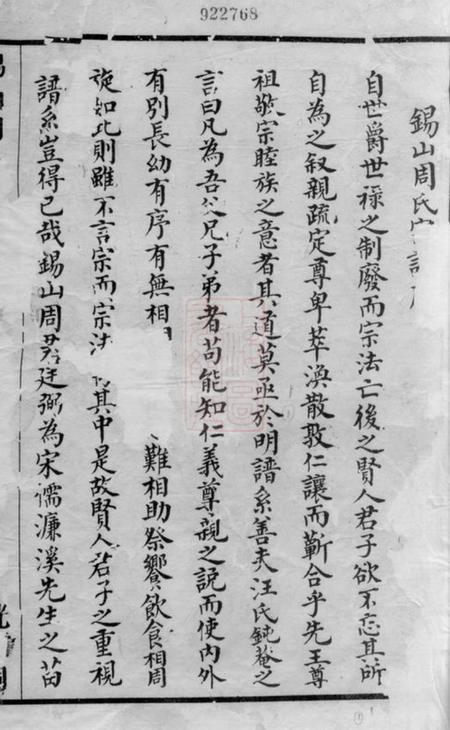 922768
錫山周氏
自世爵世祿之制廢而宗法亡後之賢人君子欲不忘其所
自為之叙親疏定尊卑萃渙散敦仁讓而蘄合乎先王尊
祖敬宗睦族之意者其道莫亟於明譜系善夫汪氏鈍菴之
言曰凡為吾父兄子弟者苟能知仁義尊親之説而使內外
有別長幼有序有無相 難相助祭饗飲食相周
旋如此則雖不言宗而宗法 其中是故賢人君子之重視
譜系豈得已哉錫山周君廷弼為宋儒濂溪先生之苗